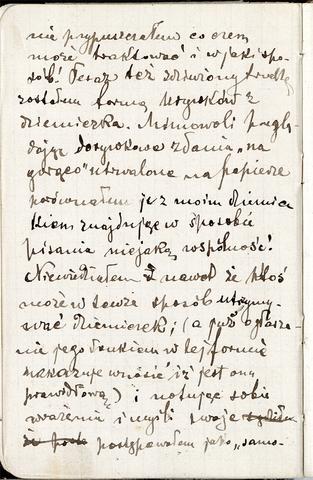 nie przypuszczałem co orem
może traktować i w jaki spo-
sób! Teraz też zdziwiony trochę
zostałem formą urywków z
dzienniczka. Mimowoli przeglą-
dając dorywkowe zdania „na
gorąco” utrwalone na papierze
porównałem je z moim dziennicz
kiem znajdując w sposobie
pisania niejaką wspólność!
Niewiedziałem nawet że ktoś
może w tenże sposób utrzymy-
wać dzienniczek; (a już ogłasza-
nie jego drukiem w tej formie
nakazuje wnosić iż jest ona
prawidłową) i notując sobie
wrażenia i myśli swoje
postępowałem jako „samo-